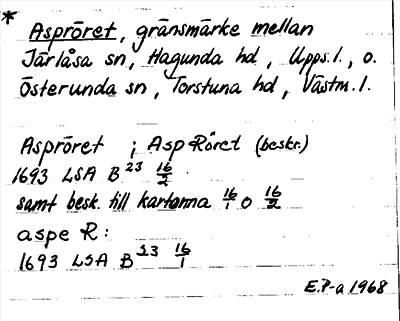 * Aspröret, gränsmärke mellan
Järlåsa sn, Hagunda hd, Upps. l., o.
Österunda sn, Torstuna hd, Västm. l.
Aspröret ; Asp Röret (beskr.)
1693 LSA B 23 16/2
samt besk. till kartorna 16/1 o 16/2
aspe R:
1693 LSA B 23 16/1
E.P-a 1968